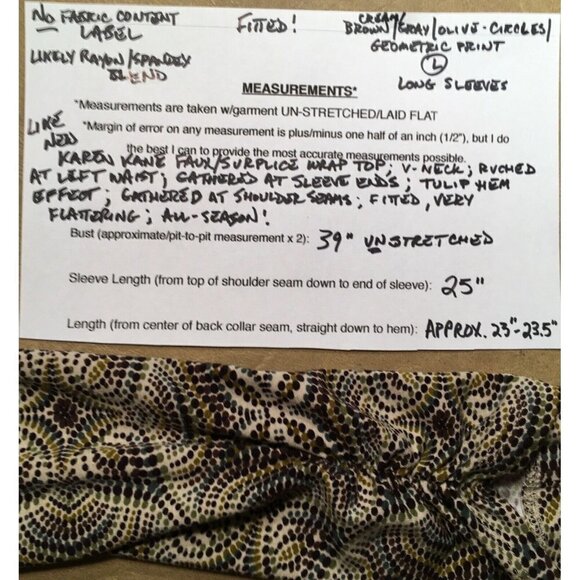 NO FABRIC CONTENT
LABEL
LIKELY RAYON/SPANDEX
BLEND
FITTED!
CREAM/
BROWN/GRAY/OLIVE-CIRCLES/
GEOMETRIC PRINT
L
LONG SLEEVES
MEASUREMENTS*
*Measurements are taken w/garment UN-STRETCHED/LAID FLAT
*Margin of error on any measurement is plus/minus one half of an inch (1/2"), but I do
the best I can to provide the most accurate measurements possible.
LIKE
NEW
KAREN KANE FAUX/SURPLICE WRAP TOP; V-NECK; RUCHED
AT LEFT WAIST; GATHERED AT SLEEVE ENDS; TULIP HEM
EFFECT; GATHERED AT SHOULDER SEAMS; FITTED, VERY
FLATTERING; ALL-SEASON!
Bust (approximate/pit-to-pit measurement x 2): 39" UNSTRETCHED
Sleeve Length (from top of shoulder seam down to end of sleeve): 25"
Length (from center of back collar seam, straight down to hem): APPROX. 23"-23.5"